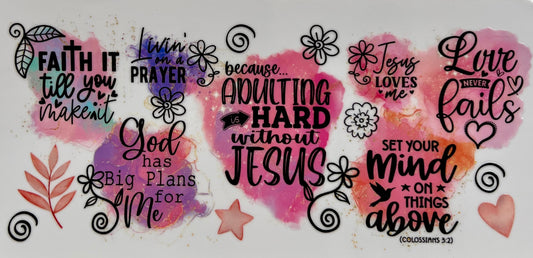 FAITH IT
till you
make it
Livin'
on a
PRAYER
because...
ADULTING
IS HARD
without
JESUS
Jesus
LOVES
me
Love
NEVER
fails
God
has
Big Plans
for
Me
SET YOUR
Mind
ON
THINGS
above
(COLOSSIANS 3:2)